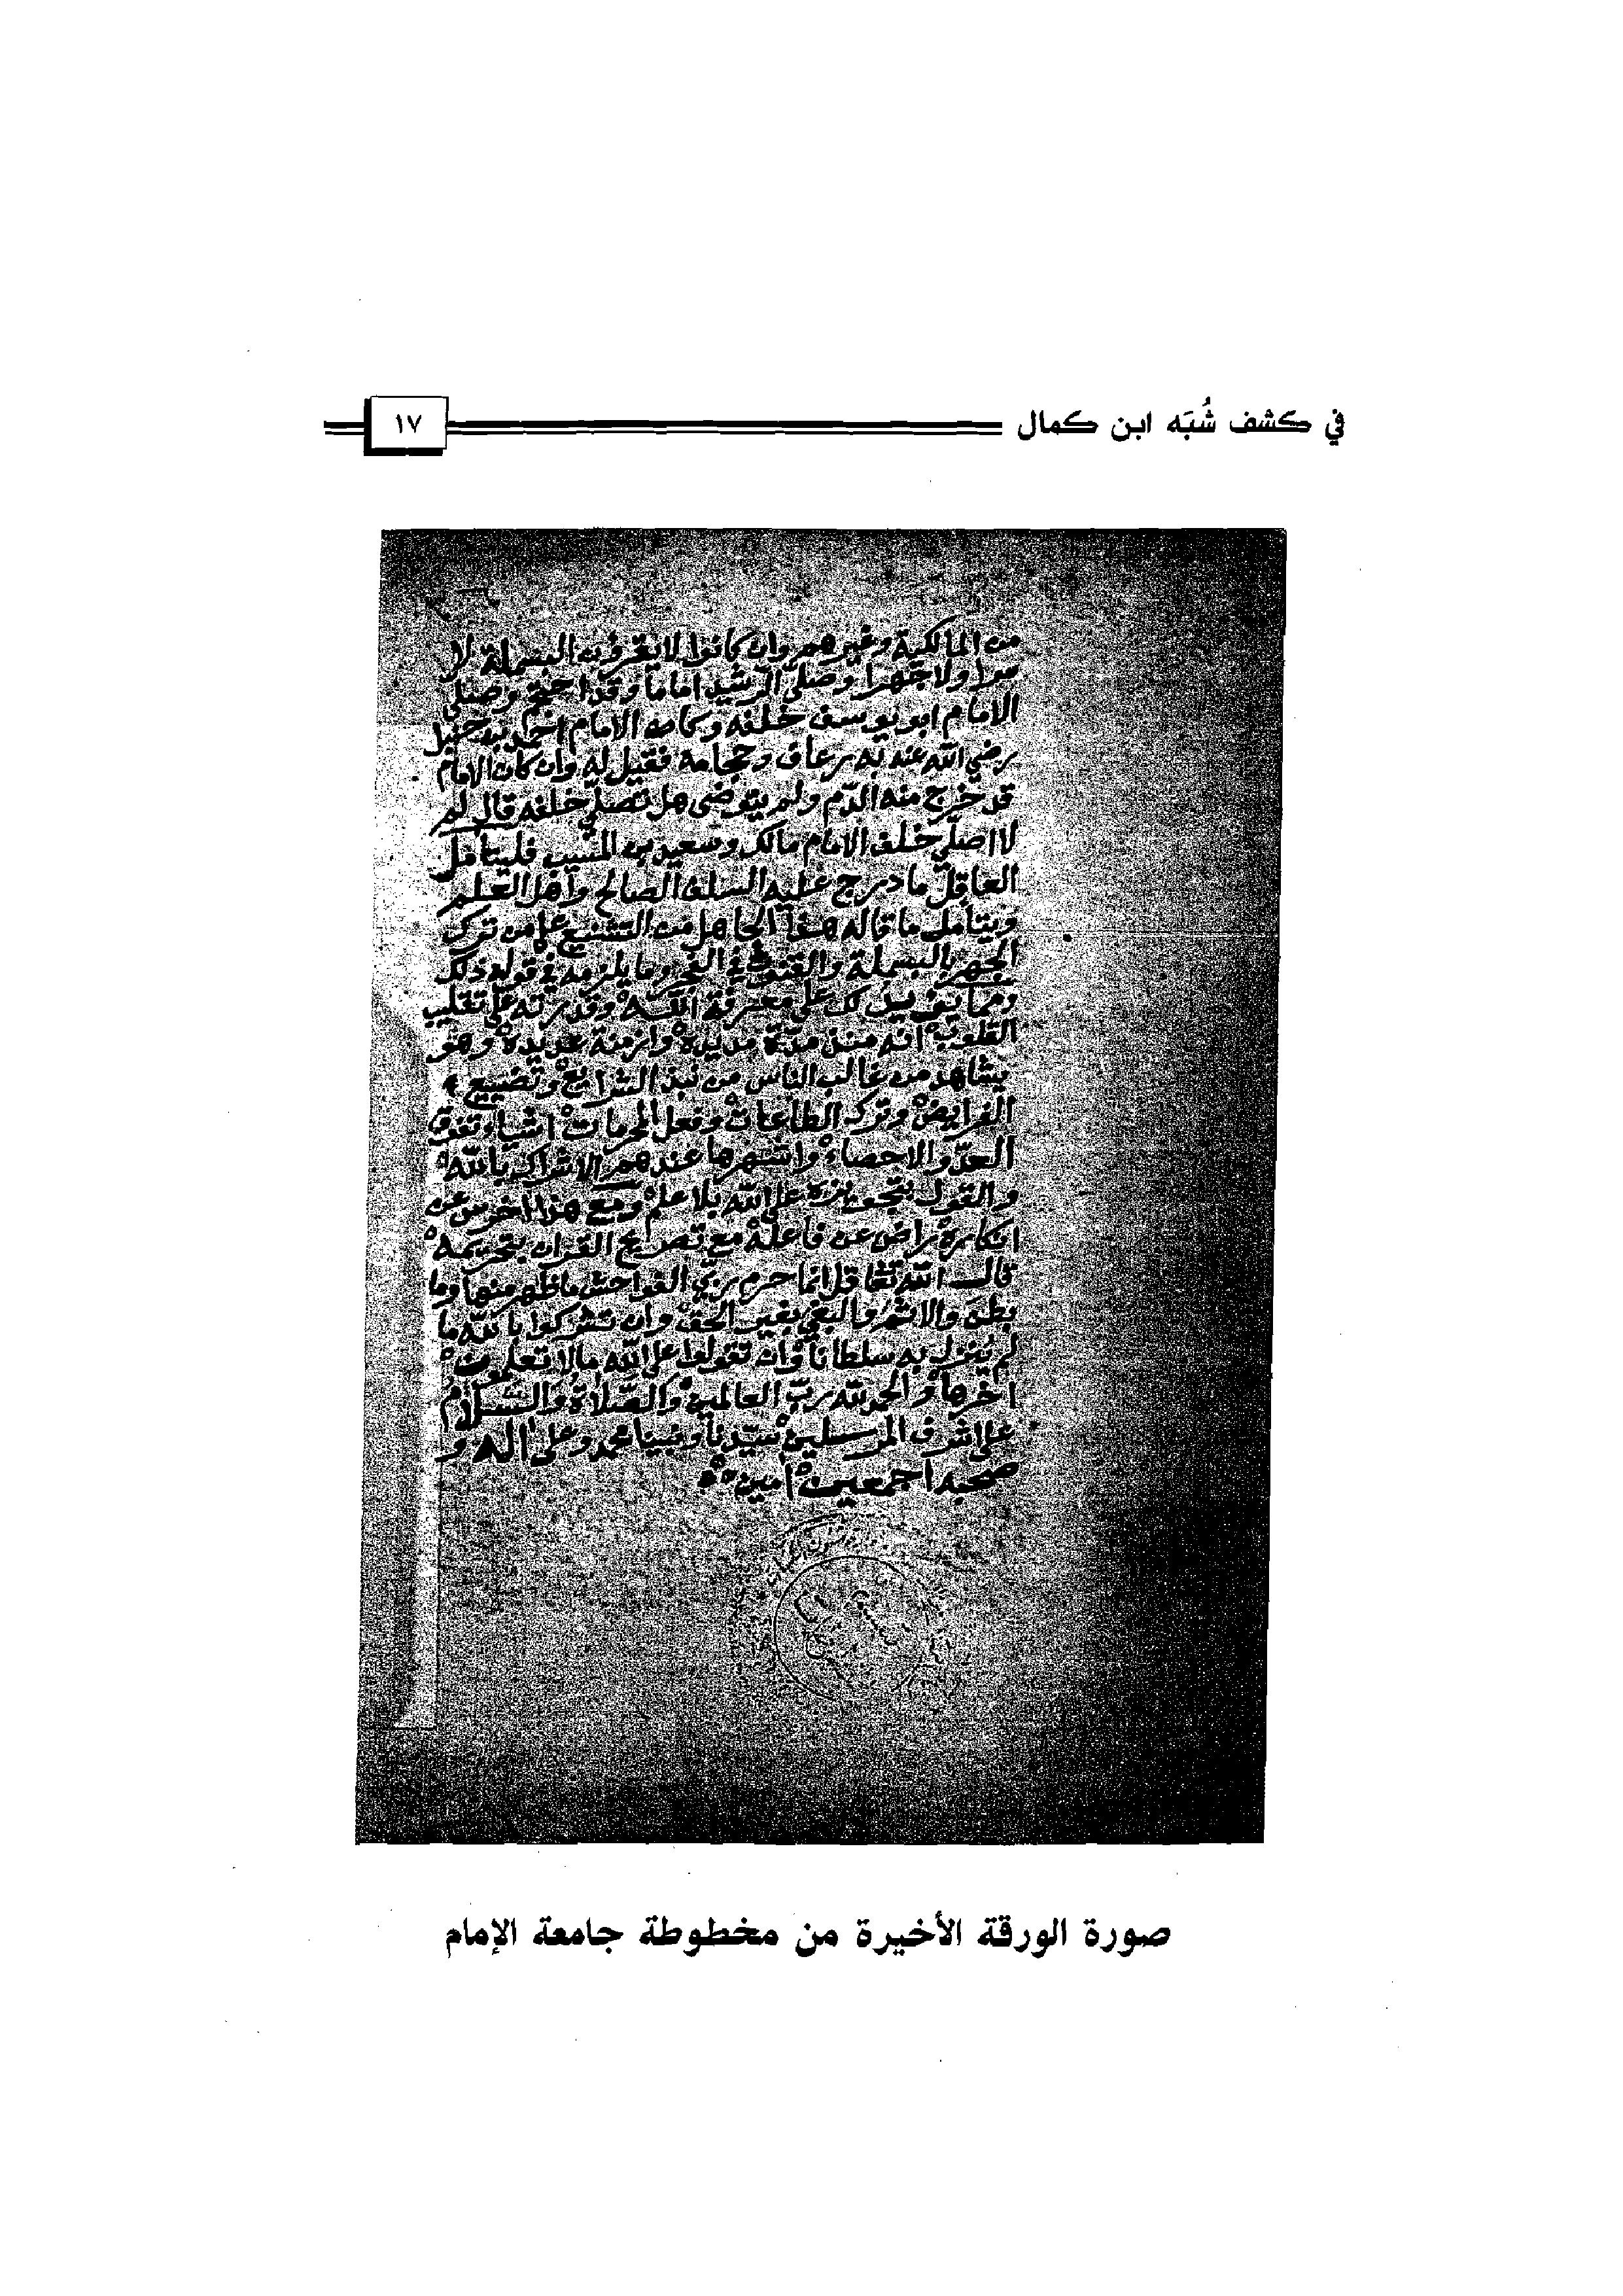 في كشف شُبَه ابن كمال
١٧
من المالكية وغيرهم وان كانوا لا يقرؤن البسملة لا
سرا ولا جهرا وصلى الرشيد اماما وقد احتجم وصلى
الامام ابو يوسف خلفه وكان الامام احمد بن حنبل
رضي الله عنه به رعاف وحجامة فقيل له وان كان الامام
قد خرج منه الدم ولم يتوضى هل تصلي خلفه قال لم
لا اصلي خلف الامام مالك وسعيد بن المسيب فليتأمل
العاقل ما درج عليه السلف الصالح واهل العلم
ويتأمل ما قاله هذا الجاهل من التشنيع على من ترك
الجهر بالبسملة والقنوت في الفجر وما يلزمه في قوله ذلك
ومما على معرفة الله وقدرته على تقليب
القلوب انه منذ مدة مديدة وازمنة عديدة وهو
يشاهد من غالب الناس من نبذ الشرايع وتضييع
الفرايض وترك الطاعات وفعل المحرمات اشياء تفوق
العد والاحصاء واشهرها عندهم الاشراك بالله
والقول على الله بلا علم ومع هذا اخرس عن
انكاره راض عن فاعله مع تصريح القران بتحريمه
قال الله تعا قل انما حرم ربي الفواحش ما ظهر منها وما
بطن والاثم والبغي بغير الحق وان تشركوا بالله ما
لم ينزل به سلطانا وان تقولوا على الله مالا تعلمون
اخرها والحمد لله رب العالمين والصلاة والسلام
على اشرف المرسلين سيدنا ونبينا محمد وعلى اله و
صحبه اجمعين امين
صورة الورقة الأخيرة من مخطوطة جامعة الإمام